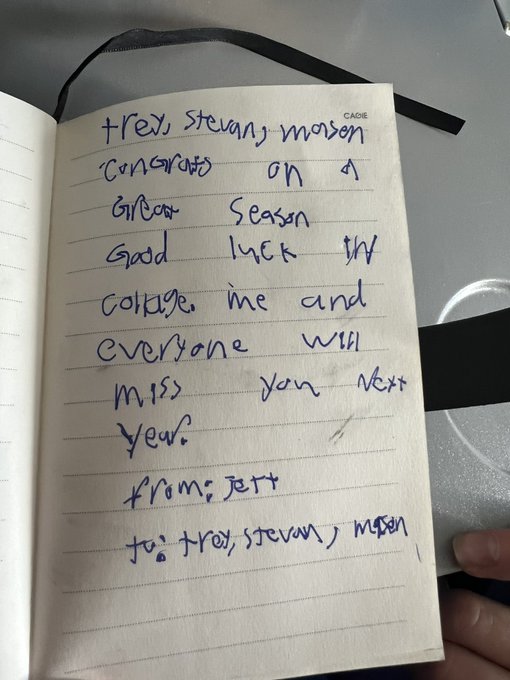 CAGIE
trey, stevan, mason
congrats on a
Great season
Good luck IN
collage. me and
everyone will
miss you Next
year.
from: jett
to: trey, stevan, mason